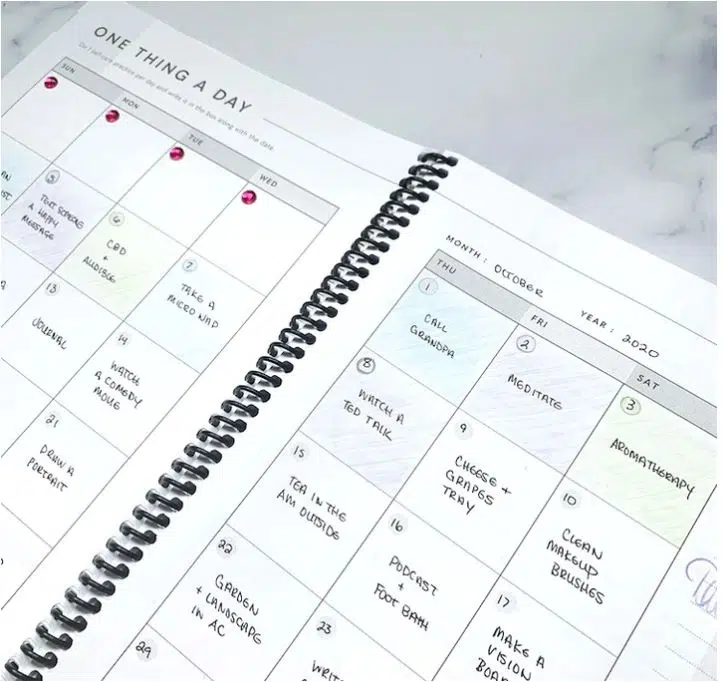 ONE THING A DAY
Do 1 self-care practice per day and write it in the box along with the date.
SUN
MON
TUE
WED
5
TEXT SOMEONE
A HAPPY
MESSAGE
6
CBD
+
AUDIBLE
7
TAKE A
MICRO NAP
13
JOURNAL
14
WATCH
A COMEDY
MOVIE
21
DRAW A
PORTRAIT
MONTH: OCTOBER
YEAR: 2020
THU
FRI
SAT
1
CALL
GRANDPA
2
MEDITATE
3
AROMATHERAPY
8
WATCH A
TED TALK
9
CHEESE +
GRAPES
TRAY
10
CLEAN
MAKEUP
BRUSHES
15
TEA IN THE
AM OUTSIDE
16
PODCAST
+
FOOT BATH
17
MAKE A
VISION
22
GARDEN
+ LANDSCAPE
IN AC
23
29